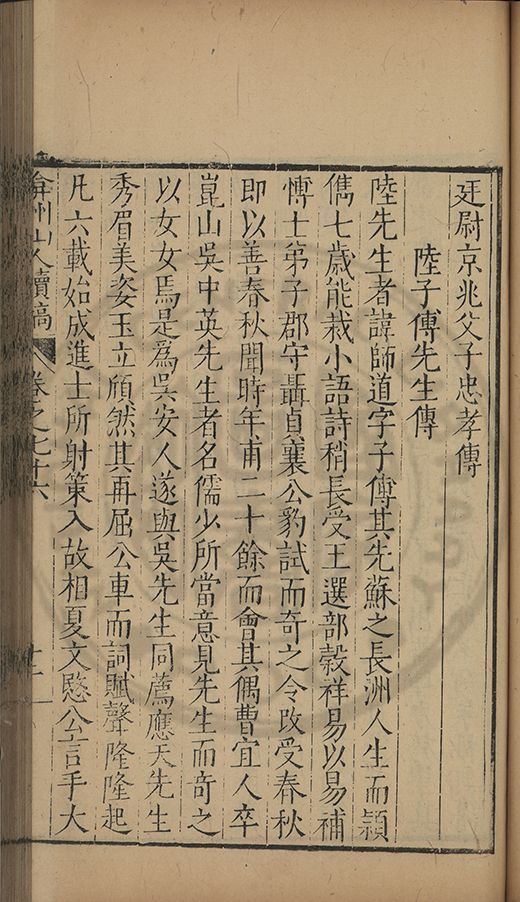 廷尉京兆父子忠孝傳
陸子傳先生傳
陸先生者諱師道字子傳其先蘇之長洲人生而頴
儁七歲能裁小語詩稍長受王選部穀祥易以易補
博士弟子郡守聶貞襄公豹試而奇之令改受春秋
即以善春秋聞時年甫二十餘而會其偶曹宜人卒
崑山吳中英先生者名儒少所當意見先生而奇之
以女女焉是爲吳安人遂與吳先生同薦應天先生
秀眉美姿玉立頎然其再屈公車而詞賦聲隆隆起
凡六載始成進士所射策入故相夏文愍公言手大
弇州山人續稿 卷之七十六